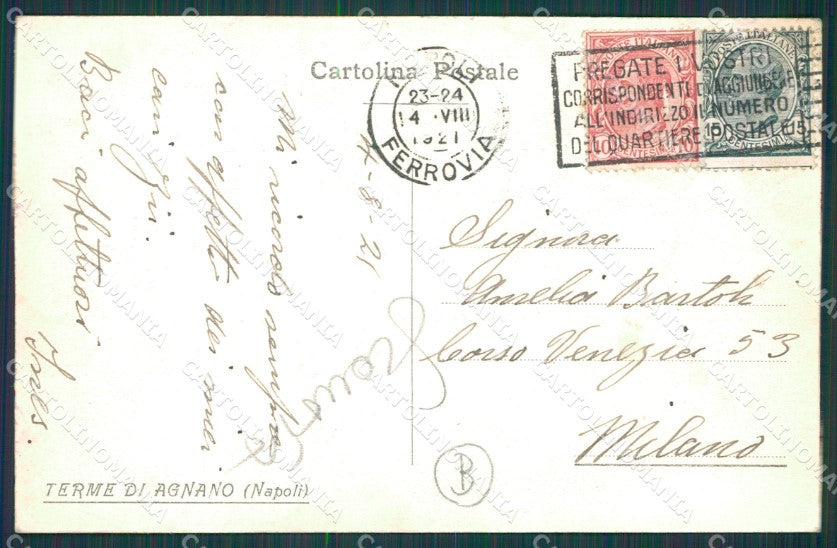 Cartolina Postale
NAPOLI
23-24
4 · VIII
1921
FERROVIA
PREGATE I VOSTRI
CORRISPONDENTI D'AGGIUNGERE
ALL'INDIRIZZO IL NUMERO
DEL QUARTIERE POSTALE
4-8-21
Mi ricordo sempre
con affetto dei miei
cari zii.
Baci affettuosi
Ines.
Signora
Amelia Bartoli
Corso Venezia 53
Milano
B
TERME DI AGNANO (Napoli)
CARTOLINOMANIA